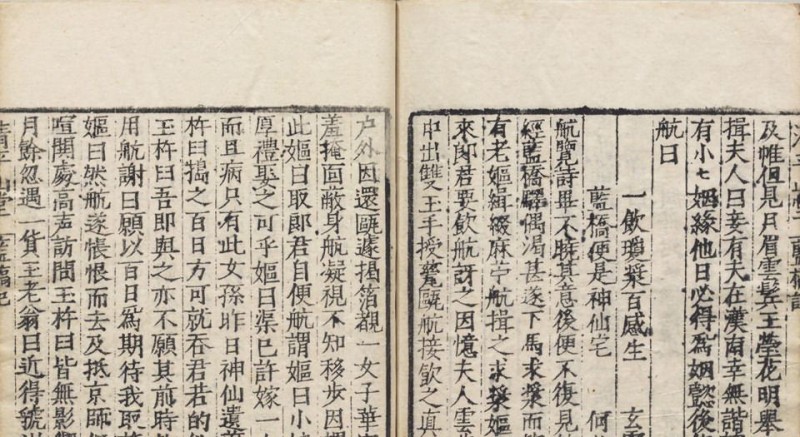 藍橋記
及帷但見月眉雲鬢玉瑩花明舉
揖夫人曰妾有夫在漢南幸無諧
有小七姻緣他日必得為姻懿後
航曰
一飲瓊漿百感生 玄
藍橋便是神仙宅 何
航覽詩畢不曉其意後便不復見
經藍橋驛偶渴甚遂下馬求漿而
有老嫗緝綴麻苧航揖之求漿嫗
來郎君要飲航訝之因憶夫人雲
中出雙玉手授甕甌航接飲之真
戶外因還甌遽揭箔覩一女子華
羞掩面蔽身航凝視不知移步因
此嫗曰取郎君自便航謂嫗曰小
厚禮娶之可乎嫗曰渠已許嫁一
而且病只有此女孫昨日神仙遺
杵曰搗之百日方可就吞君若的
玉杵曰吾即與之亦不願其前時
用航謝曰願以百日為期待我取
嫗曰然航遂悵恨而去及抵京師
喧鬨處高声訪問玉杵曰皆無影
月餘忽遇一貨玉老翁曰近得號
清平山堂 藍橋記